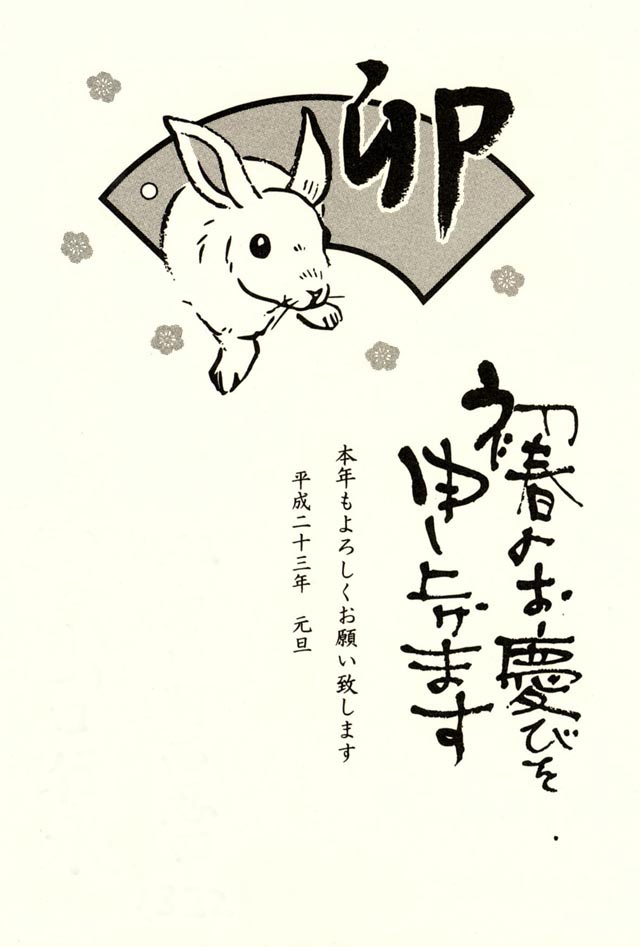 卯
初春のお慶びを
申し上げます
本年もよろしくお願い致します
平成二十三年　元旦